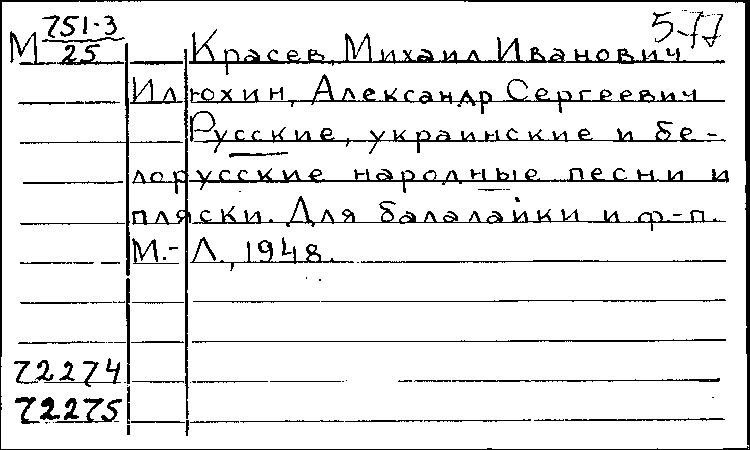 М 751-3/25
5-77
Красев, Михаил Иванович
Илюхин, Александр Сергеевич
Русские, украинские и бе-
лорусские народные песни и
пляски. Для балалайки и ф-п.
М.-Л., 1948.
72274
72275